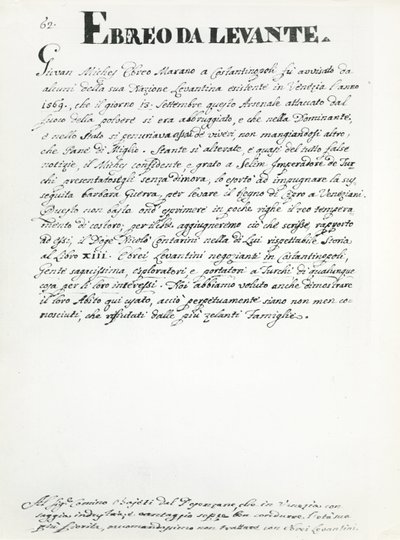 62.
EBREO DA LEVANTE.
Giovan Miches Ebreo Marano a Costantinopoli fù avvisato da
alcuni della sua Nazione Levantina esistente in Venezia l'anno
1569, che il giorno 13. Settembre questo Arsenale attaccato dal
fuoco della polvere si era abbruggiato, e che nella Dominante,
e nello Stato si penuriava assai de viveri, non mangiandosi altro,
che Pane di Miglio. Stante sì alterate, e quasi del tutto false
notizie, il Miches confidente, e grato a Selim Imperadore de Tur
chi presentatosegli senza dimora, lo esortò ad impugnare la sus,
seguita barbara Guerra, per levare il Regno di Cipro a Veneziani.
Questo non basta onde esprimere in poche righe il reo tempera
mento di costoro; perilchè aggiugneremo ciò che scrisse rapporto
ad essi, il Doge Nicolò Contarini nella di Lui rispettabile Storia
al Libro XIII. Ebrei Levantini negozianti in Costantinopoli,
Gente sagacissima, esploratori e portatori a Turchi di qualunque
cosa per li loro interessi. Noi abbiamo voluto anche dimostrare
il loro Abito qui usato, acciò perpetuamente siano non men co
nosciuti, che rifiutati dalle più zelanti Famiglie.
Al Sigr. dal che in Venezia con
saggia vantaggia sempre ben condurre
più fiorita, raccomandasimo non trattare con Ebrei Levantini.